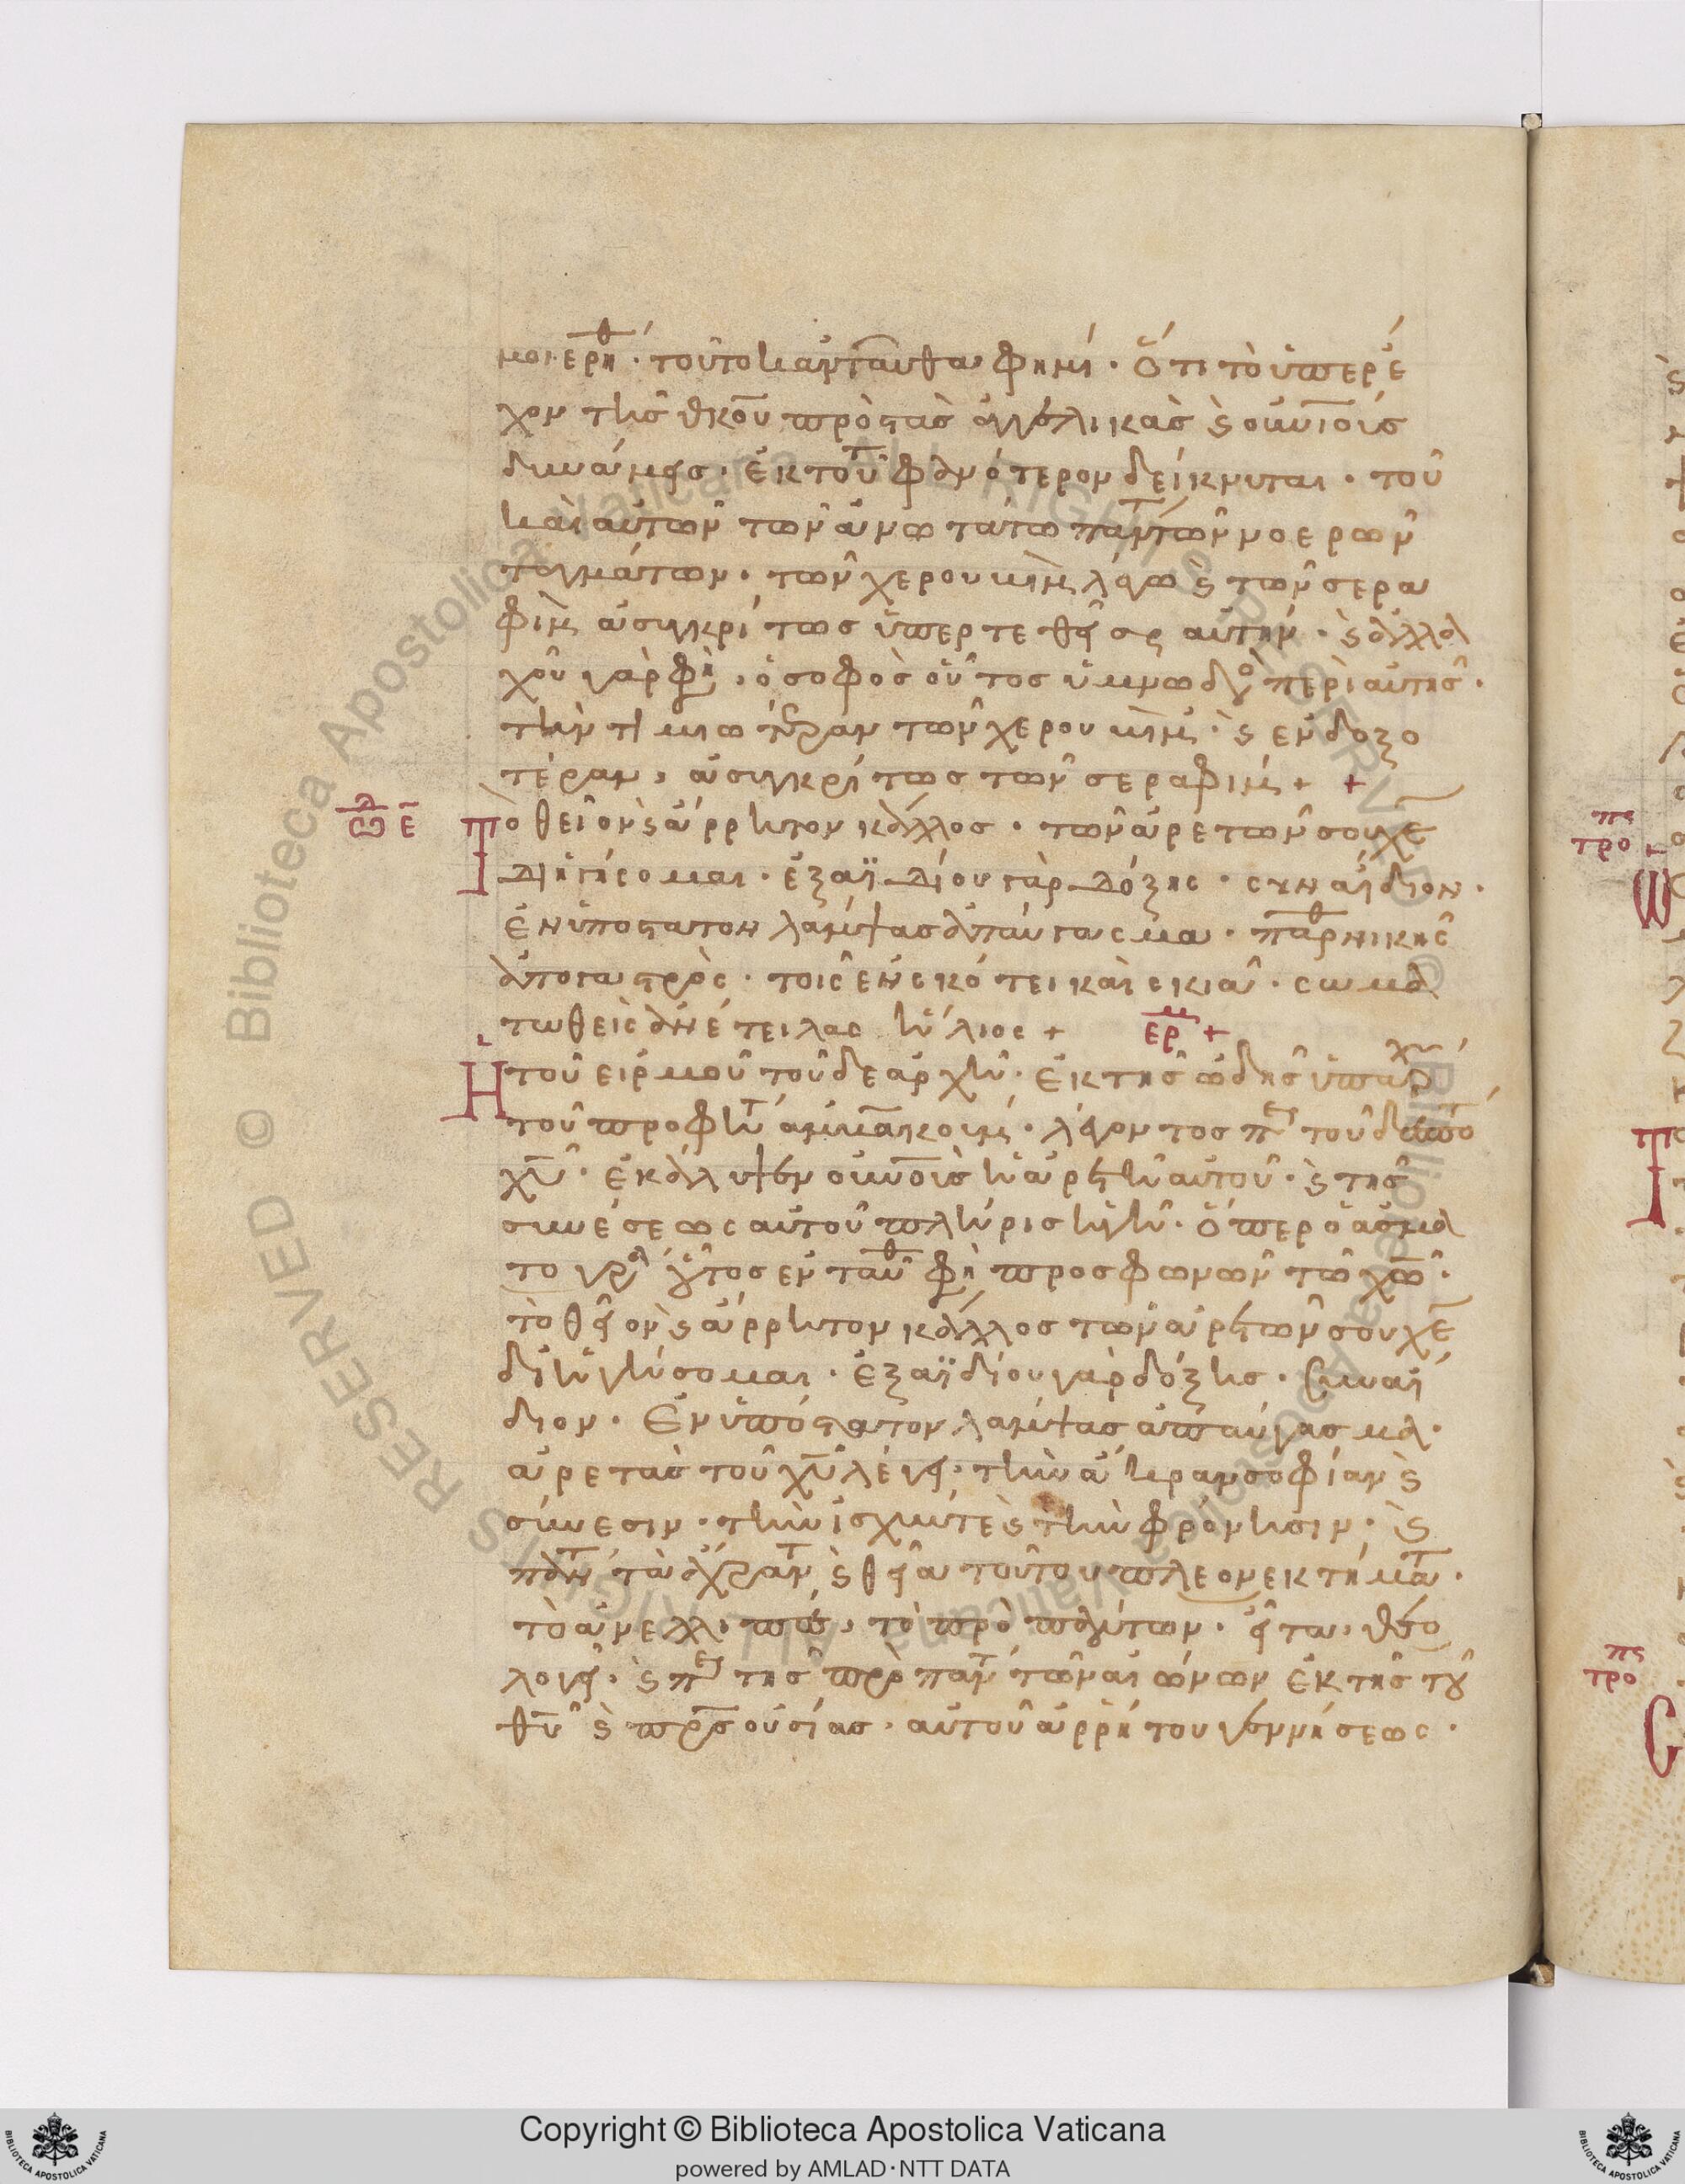 μοι ἐρηθ· τοῦτο κἀνταῦθα φημί· ὅτι τὸ ὑπερέ
χον τῆς θκου πρὸς τὰς ἀγγελικὰς ϛ οὐνίους
δυνάμεις· ἐκ τούτ φανότερον δείκνυται· τοῦ
καὶ αὐτῶν τῶν ἀνωτάτω παντων νοερῶν
ταγμάτων· τῶν χερουβὶμ λέγω ϛ τῶν σερα
φὶμ ἀσυγκρίτως ὑπερτεθεῖσθαι αὐτήν· ϛ ἀλλα
χοῦ γὰρ φη, ὁ σοφὸς οὗτος ὑμνωδο περὶ αὐτῆς·
τὴν τιμιωτέραν τῶν χερουβὶμ· ϛ ἐνδοξο
τέραν, ἀσυγκρίτως τῶν σεραφίμ + +
ωδ ε Τὸ θεῖον ϛ ἄρρητον κάλλος· τῶν ἀρετῶν σου χε
διηγήσομαι· ἐξ ἀϊδίου γὰρ δόξης· συναΐδιον·
ἐνυπόστατον λάμψας ἀπαύγασμα· παρθνικῆς
ἀπὸ γαστρὸς· τοῖς ἐν σκότει καὶ σκιᾷ· σωμα
τωθεὶς ἀνέτειλας ἥλιος + ερμ +
Ἡ τοῦ εἱρμοῦ τοῦδε ἀρχὴ· ἐκ τῆς ᾠδῆς ὑπάρχ
τοῦ προφήτ ἀμβακούμ· λέγοντος περ τοῦ δεσπό
χυ· ἐκάλυψεν οὐνοὺς ἡ ἀρετὴ αὐτοῦ· ϛ τῆς
συνέσεως αὐτοῦ πλήρης ἡ γῆ· ὅπερ ὁ ἀσμα
τογρα οὗτος ἐνταυθ φη προσφωνῶν τῶ χω·
τὸ θεῖον ϛ ἄρρητον κάλλος τῶν ἀρετῶν σου χε
διηγήσομαι· ἐξ ἀϊδίου γὰρ δόξης· συναΐ
διον· ἐνυπόστατον λάμψας ἀπαύγασμα·
ἀρετὰς τοῦ χυ λέγει· τὴν ἄκραν σοφίαν ϛ
σύνεσιν· τὴν ἰσχύν τε ϛ τὴν φρόνησιν· ϛ
πάντ τὰ ἄχραντ ϛ θεῖα τούτου πλεονεκτήματ·
τὸ ἀνελλιπὲς, τὸ πρὸ πάντων· εἶτα, θεο
λογεῖ· ϛ περ τῆς πρὸ παντ τῶν αἰώνων ἐκ τῆς τοῦ
θυ ϛ πρς οὐσίας· αὐτοῦ ἀρρήτου γεννήσεως·
πς
τρο
πς
τρο
Copyright © Biblioteca Apostolica Vaticana
powered by AMLAD·NTT DATA